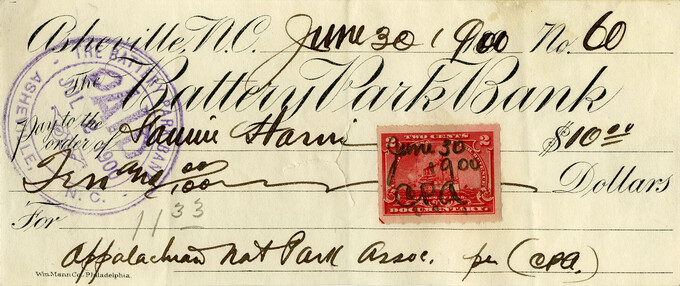 Asheville, N.C. June 30 1900 No. 60
The Battery Park Bank
Pay to the order of Harris $10.00
Ten and 00/100 Dollars
For
1133
Appalachian Nat Park Assoc. per (CPA.)
Wm. Mann Co. Philadelphia.
THE BATTERY PARK BANK
PAID
JUL
1900
ASHEVILLE, N.C.
TWO CENTS 2
June 30
1900
CPA
DOCUMENTARY.